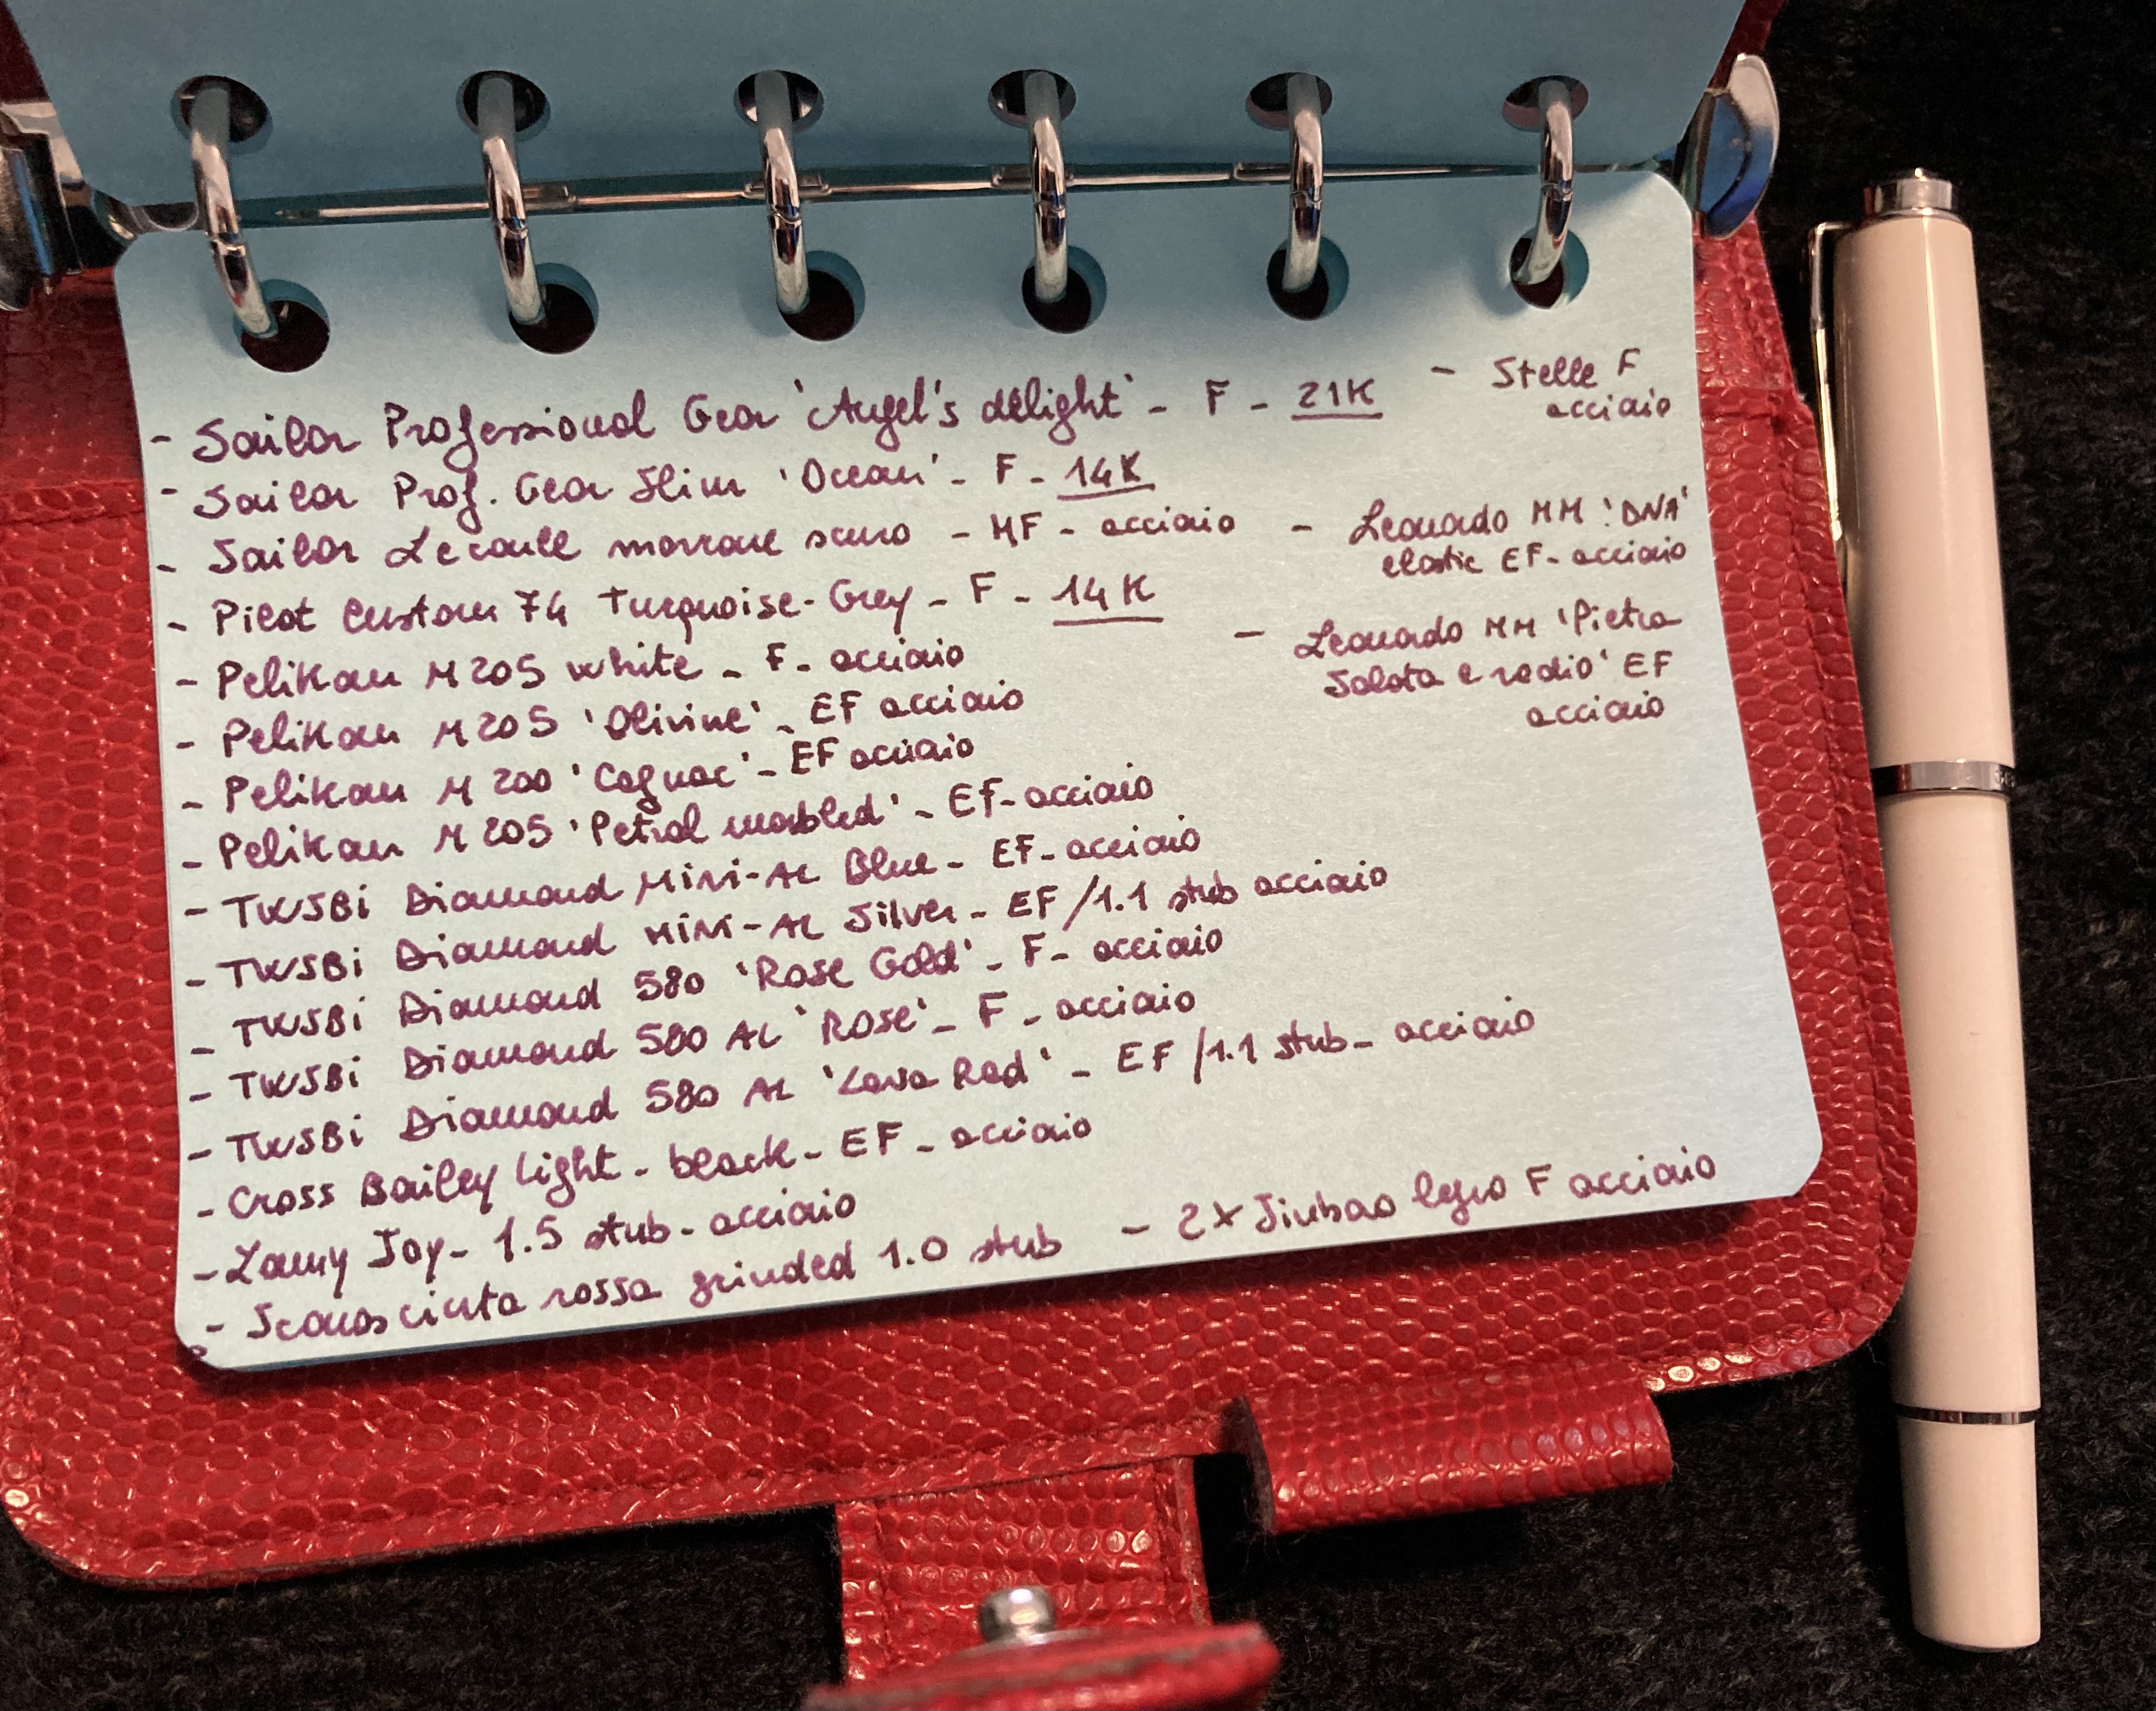 - Sailor Professional Gear 'Angel's delight' - F - 21K
- Sailor Prof. Gear Slim 'Ocean' - F - 14K
- Sailor Lecoule marrone scuro - MF - acciaio
- Pilot Custom 74 Turquoise-Grey - F - 14K
- Pelikan M205 white - F - acciaio
- Pelikan M205 'Olivine' - EF acciaio
- Pelikan M200 'Cognac' - EF acciaio
- Pelikan M205 'Petrol marbled' - EF - acciaio
- TWSBi Diamond Mini-AL Blue - EF - acciaio
- TWSBi Diamond MiNi-AL Silver - EF /1.1 stub acciaio
- TWSBi Diamond 580 'Rose Gold' - F - acciaio
- TWSBi Diamond 580 AL 'Rose' - F - acciaio
- TWSBi Diamond 580 AL 'Lava Red' - EF /1.1 stub - acciaio
- Cross Bailey Light - black - EF - acciaio
- Lamy Joy - 1.5 stub - acciaio
- Sconosciuta rossa grinded 1.0 stub
- Stelle F
acciaio
- Leonardo MM 'DNA'
elastic EF - acciaio
- Leonardo MM 'Pietra
Salata e radio' EF
acciaio
- 2x Jinhao legno F acciaio